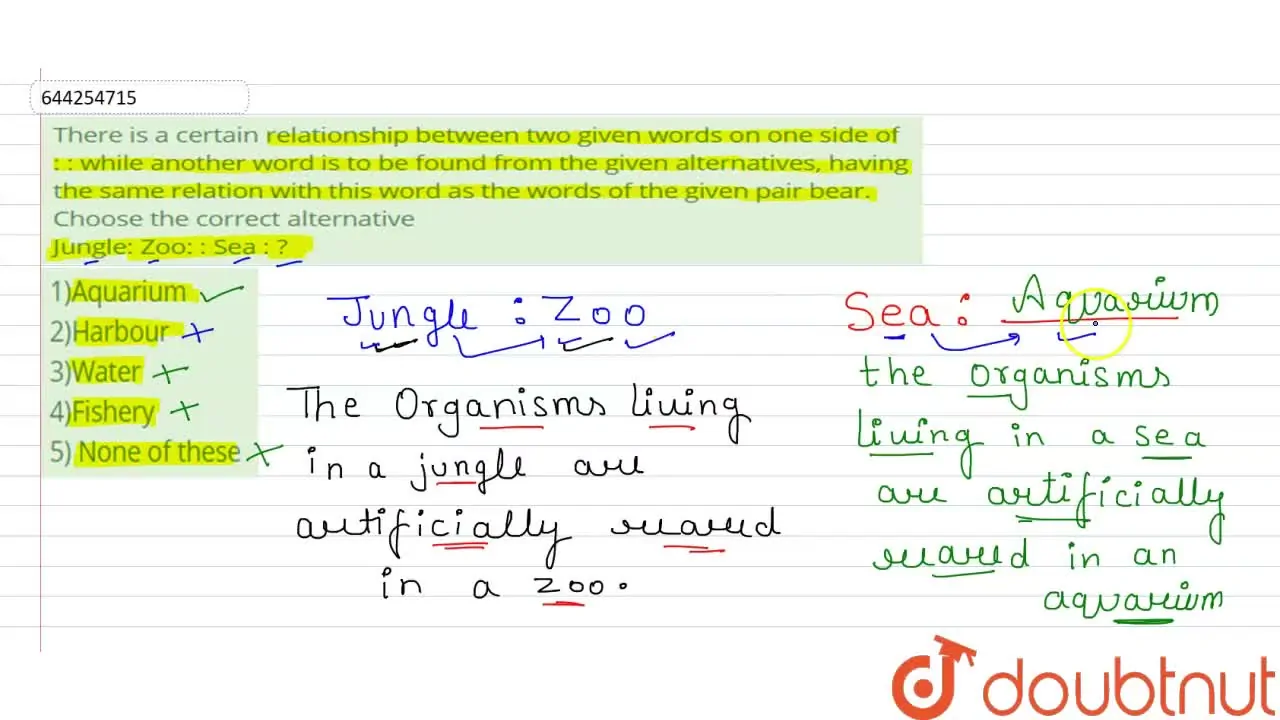 644254715
There is a certain relationship between two given words on one side of
: : while another word is to be found from the given alternatives, having
the same relation with this word as the words of the given pair bear.
Choose the correct alternative
Jungle: Zoo: : Sea : ?
1)Aquarium
2)Harbour
3)Water
4)Fishery
5) None of these
Jungle : Zoo
The Organisms living
in a jungle are
artificially reared
in a zoo.
Sea : Aquarium
the organisms
living in a sea
are artificially
reared in an
aquarium
doubtnut